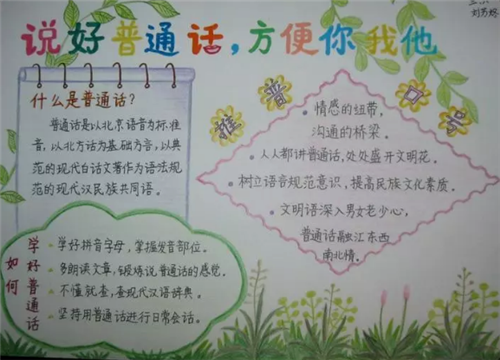 说好普通话，方便你我他
什么是普通话？
普通话是以北京语音为标准
音，以北方话为基础方言，以典
范的现代白话文著作为语法规
范的现代汉民族共同语。
推普口号
情感的纽带，
沟通的桥梁。
人人都讲普通话，处处盛开文明花。
树立语音规范意识，提高民族文化素质。
文明语深入男女老少心，
普通话融汇东西
南北情。
如何
学好普通话
学好拼音字母，掌握发音部位。
多朗读文章，锻炼说普通话的感觉。
不懂就查，查现代汉语辞典。
坚持用普通话进行日常会话。